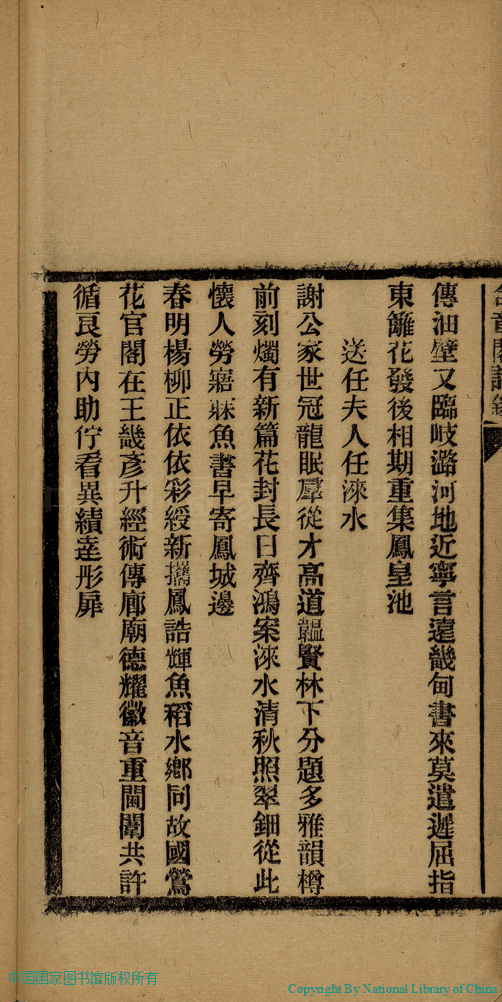 傳油壁又臨岐潞河地近寧言遠畿甸書來莫遣遲屈指
東籬花發後相期重集鳳皇池
送任夫人任淶水
謝公家世冠龍眠羣從才高道韞賢林下分題多雅韻樽
前刻燭有新篇花封長日齊鴻案淶水清秋照翠鈿從此
懷人勞寤寐魚書早寄鳳城邊
春明楊柳正依依彩綬新攜鳳誥輝魚稻水鄉同故國鶯
花官閣在王畿彥升經術傳廊廟德耀徽音重閫闈共許
循良勞內助佇看異績達彤扉
中国国家图书馆版权所有
Copyright By National Library of China